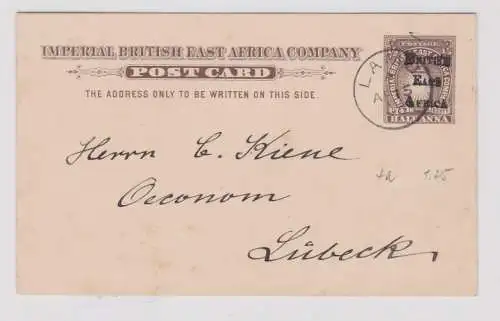 IMPERIAL BRITISH EAST AFRICA COMPANY
POST CARD
THE ADDRESS ONLY TO BE WRITTEN ON THIS SIDE.
POSTAGE
BRITISH
EAST
AFRICA
HALF ANNA
LA
Herrn C. Kiene
Oeconom
Lübeck